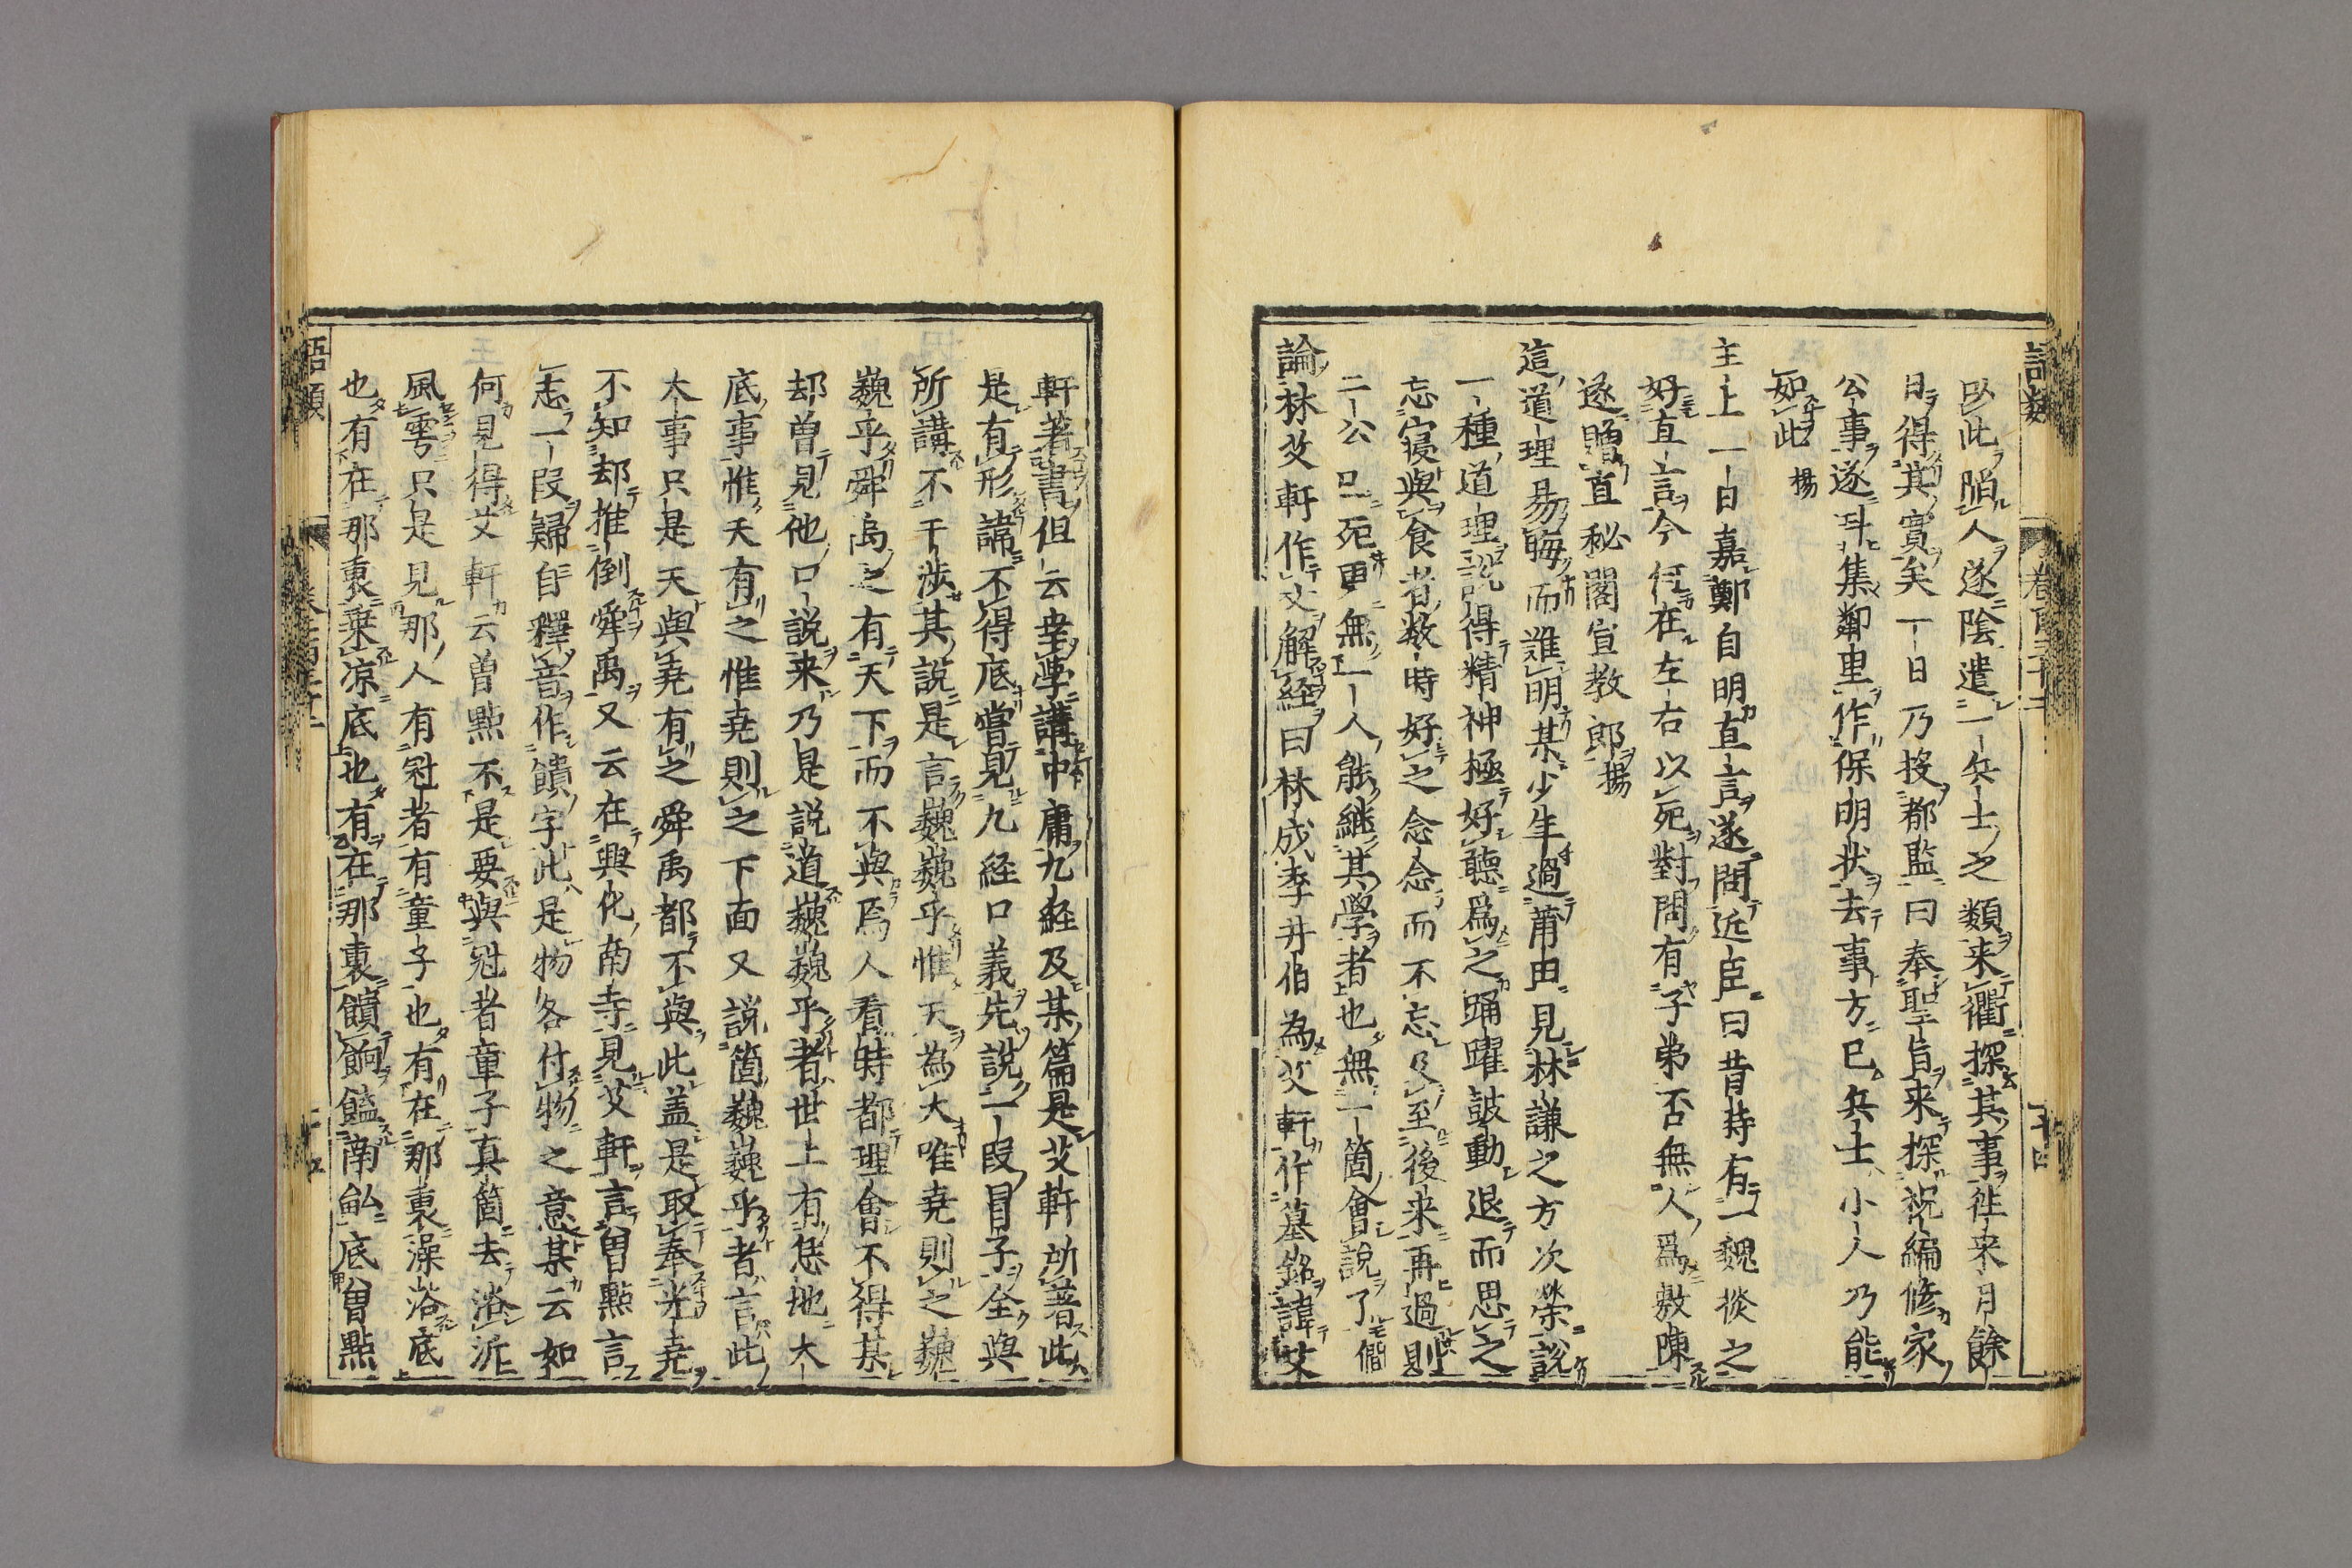 語類 卷百三十二 二十四
欧此陷人遂陰遣一兵士之類来衢探其事徃来月餘
日得其實矣一日乃投都監曰奉聖旨来探祝編修家
公事遂斗集鄰里作保明状去事方已兵士小人乃能
如此 揚
主上一日嘉鄭自明直言遂問近臣曰昔持有一魏掞之
好直言今何在左右以死對問有子弟否無人爲敷陳
遂贈直秘閣宣教郎 揚
這道理易晦而難明某少年過莆田見林謙之方次榮說
一種道理說得精神極好聽爲之踊躍鼓動退而思之
忘寝與食者数時好之念念而不忘及至後来再過則
二公已死更無一人能継其學者也無一箇會說了 僴
論林艾軒作文解経曰林成季井伯為艾軒作墓銘諱艾
軒著書但云幸學講中庸九経及某篇是艾軒所著此
是有形諱不得底嘗見九経口義先説一段冒子全與
所講不干渉其說是言巍巍乎惟天為大唯堯則之巍
巍乎舜禹之有天下而不與焉人看時都理會不得某
却曽見他口説来乃是説道巍巍乎者世上有恁地大
底事惟天有之惟堯則之下面又説箇巍巍乎者言此
大事只是天與堯有之舜禹都不與此盖是取奉光堯
不知却推倒舜禹又云在興化南寺見艾軒言曽點言
志一段歸自釋音作饋字此是物各付物之意某云如
何見得艾軒云曽點不是要與冠者童子真箇去浴沂
風雩只是見那人有冠者有童子也有在那裏澡浴底
也有在那裏乗凉底也有在那裏饋餉饁南畆底曽點
語類